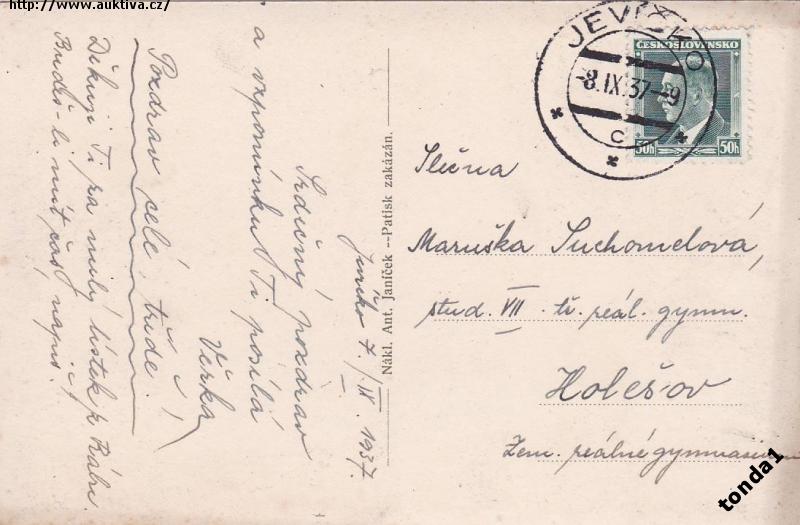 http://www.auktiva.cz/
Jevíčko 7./IX. 1937.
Srdečný pozdrav
a vzpomínku Ti posílá
Věrka
Pozdrav celé třídě!
Děkuji Ti za milý lístek z Rábí.
Budeš-li mít čas, napiš!
Nákl. Ant. Janíček --Patisk zakázán.
JEVÍČKO
-8.IX.37--9
C
ČESKOSLOVENSKO
50h 50h
Slečna
Maruška Suchomelová,
stud. VII. tř. reál. gymn.
Holešov
Zem. reálné gymnasium
tonda1